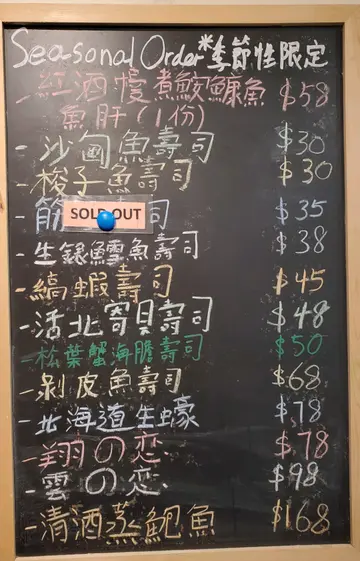 Seasonal Order*季節性限定
- 紅酒慢煮鮟鱇魚 $58
魚肝(1份)
- 沙甸魚壽司 $30
- 梭子魚壽司 $30
- 筋 SOLD OUT 司 $35
- 生銀鱈魚壽司 $38
- 縞蝦壽司 $45
- 活北寄貝壽司 $48
- 松葉蟹海膽壽司 $50
- 剝皮魚壽司 $68
- 北海道生蠔 $78
- 翔の恋 $78
- 雲の恋 $98
- 清酒蒸鮑魚 $168